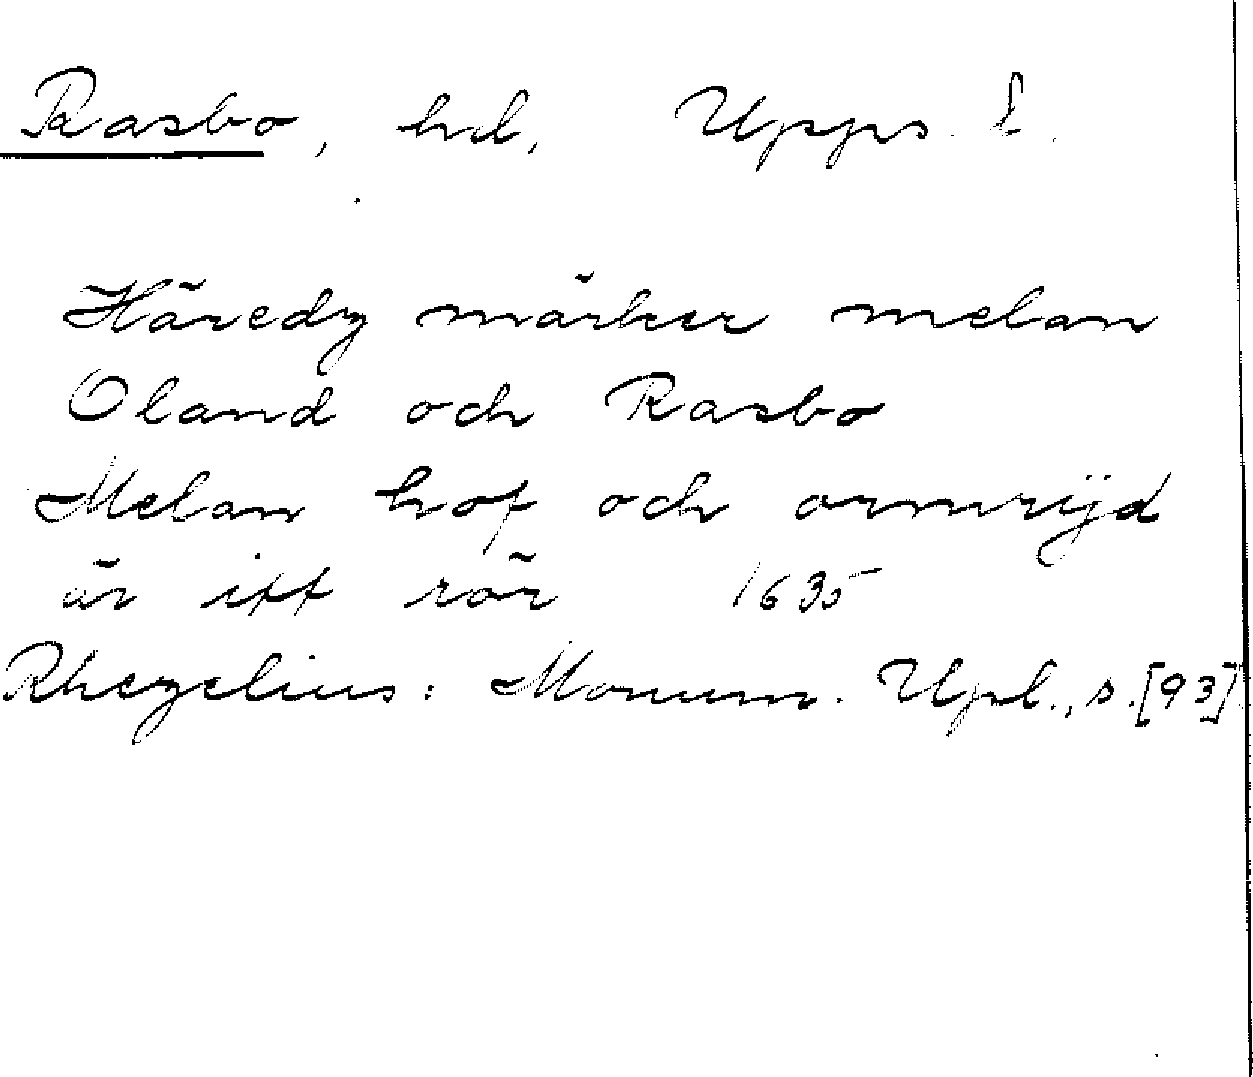 Rasbo, hd, Upps. l.
Häredz märker melan
Oland och Rasbo
Melan hof och ormrijd
är itt rör 1635
Rhezelius: Monum. Upl., s. [93]